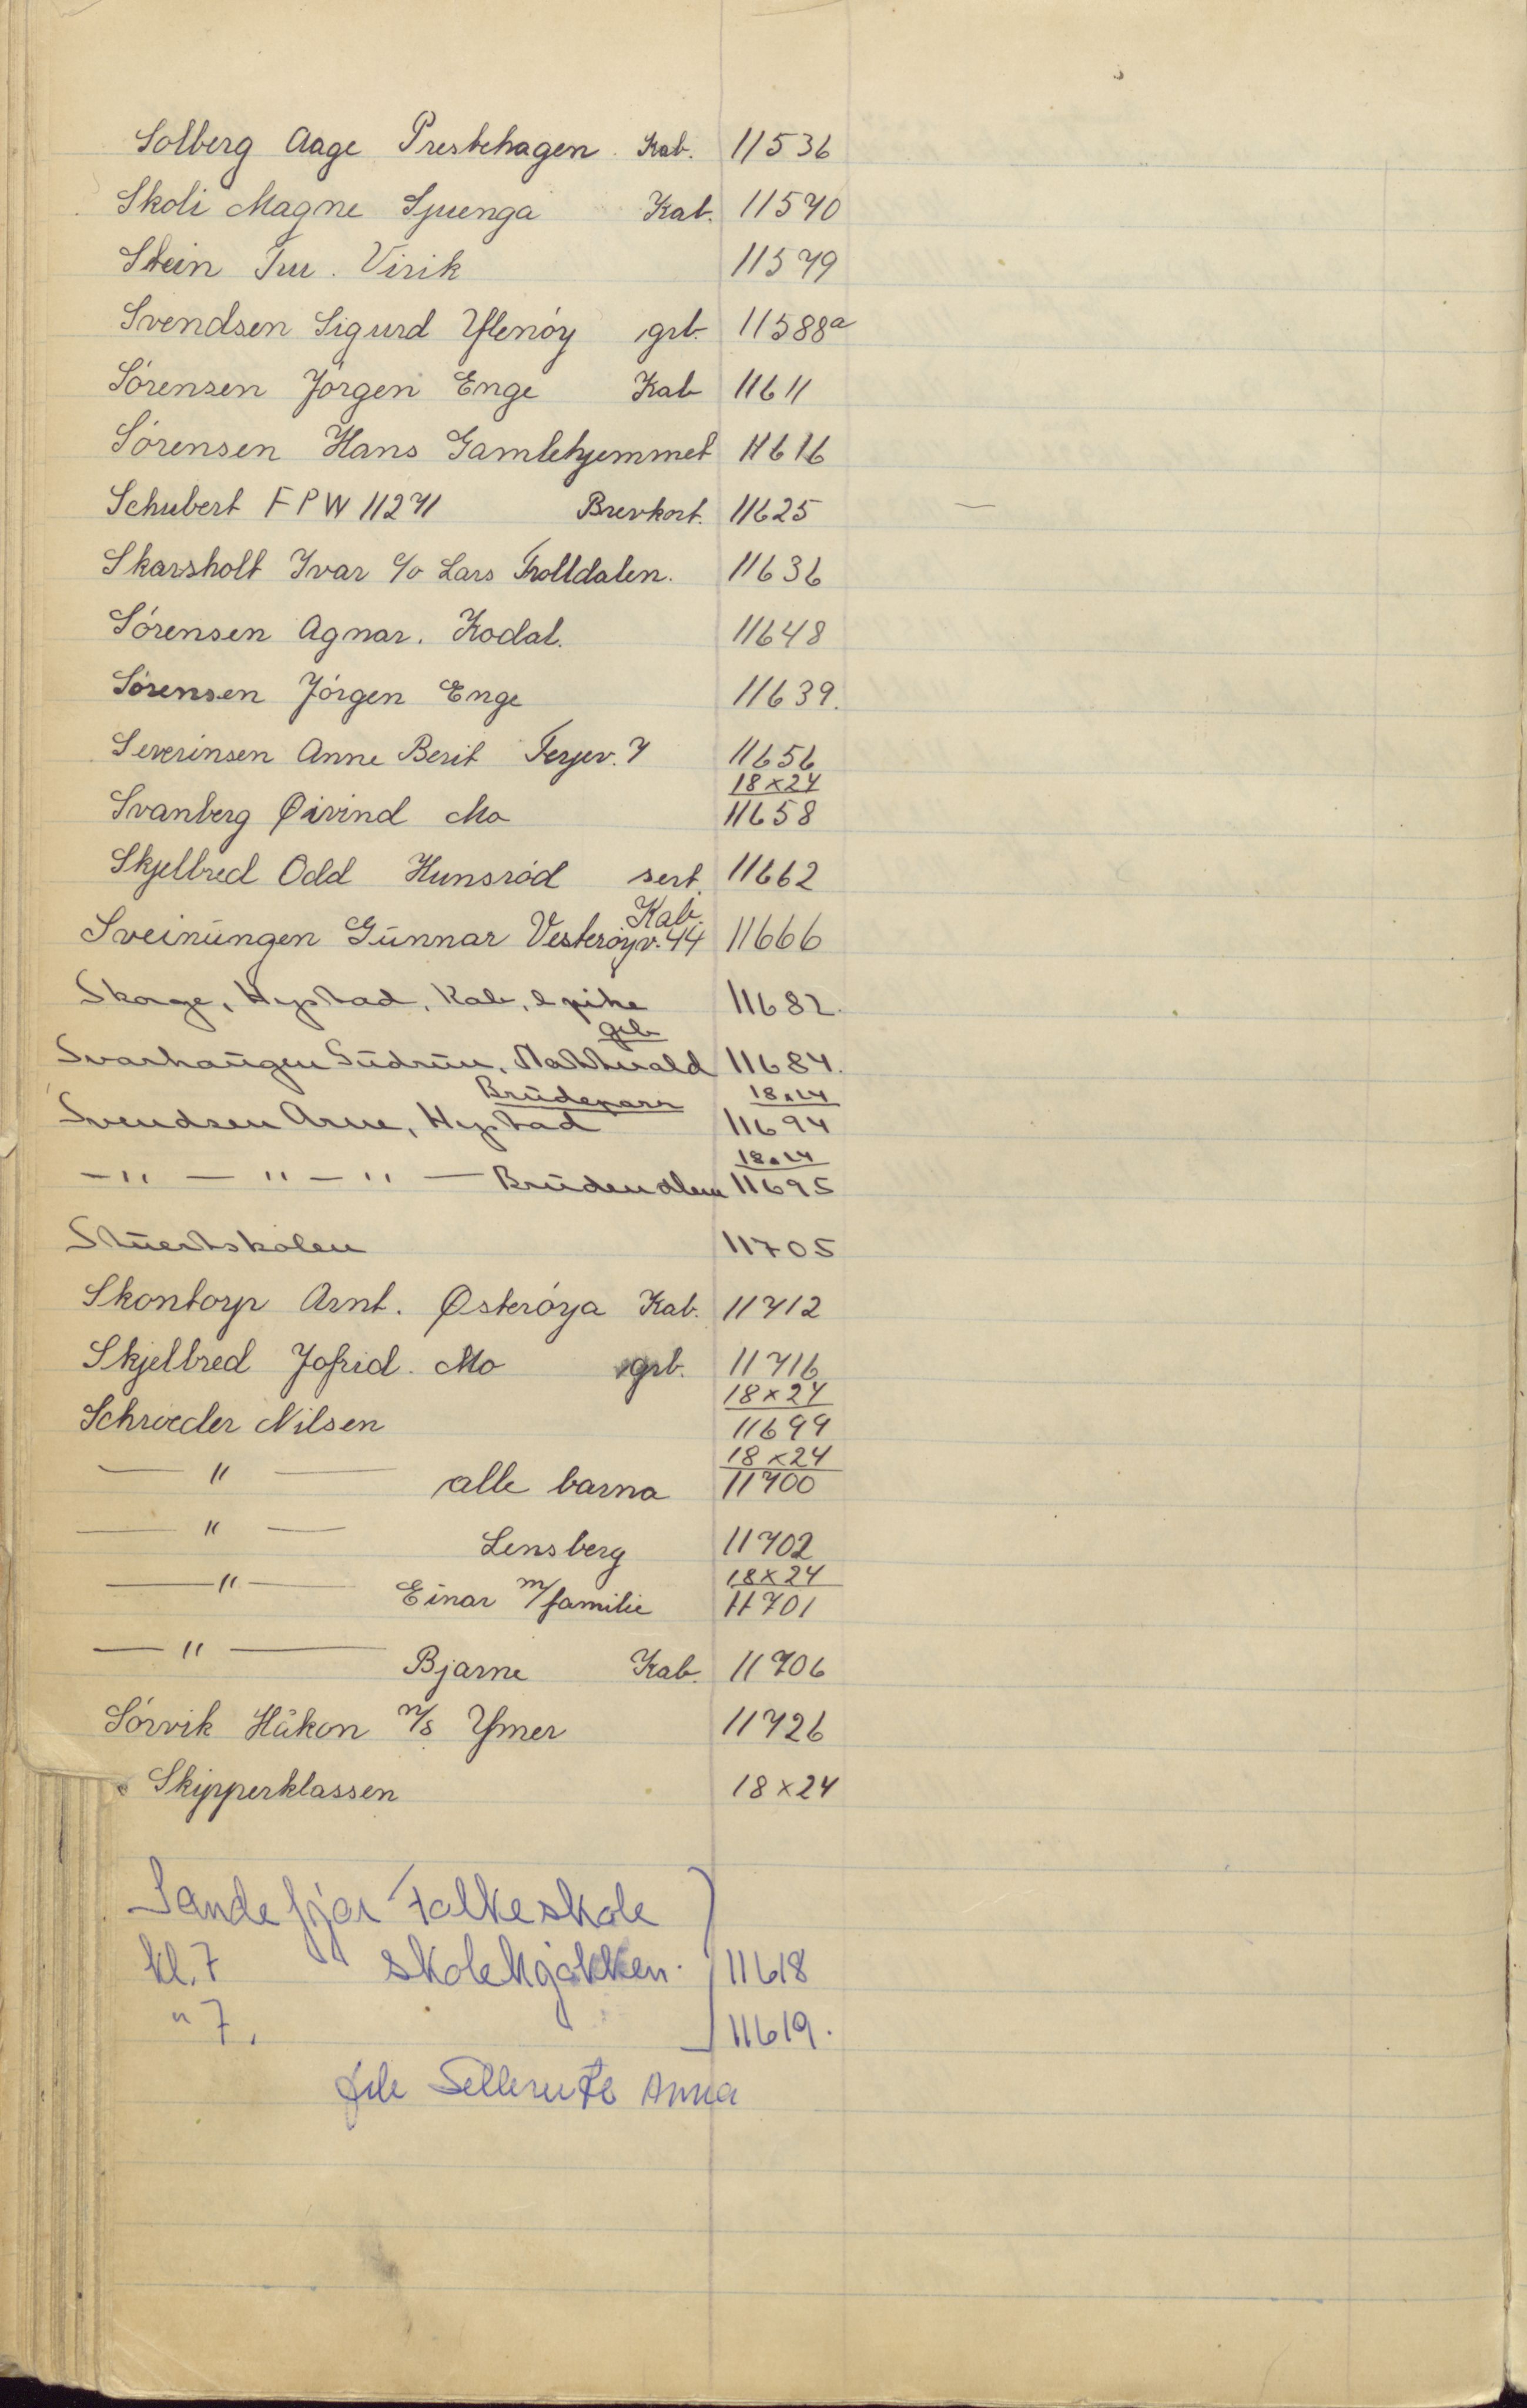 Solberg Aage Prestehagen. Kab. 11536
Skoli Magne Sjuenga Kab. 11570
Stein Tur. Virik 11579
Svendsen Sigurd Yxenöy grb. 11588a
Sörensen Jörgen Enge Kab 11611
Sörensen Hans Gamlehjemmet 11616
Schubert FPW 11271 Brevkort. 11625
Skarsholt Ivar c/o Lars Trolldalen. 11636
Sörensen Agnar. Kodal. 11648
Sörensen Jörgen Enge 11639.
Severinsen Anne Berit Terjev. 7 11656
18x24
Svanberg Øivind Mo 11658
Skjelbred Odd Hunsröd sert. 11662
Kab.
Sveinungen Gunnar Vesteröyv. 44 11666
Skorge, Hystad, Kab, 2 piker 11682.
grb
Svarhaugen Gudrun, 11684.
Brudepar 18x24
Svendsen Arne, Hystad 11694
18x24
— " — " — " — Bruden alene 11695
Stuertskolen 11705
Skontorp Arnt. Østeröya Kab. 11712
Skjelbred Jofrid. Mo grb. 11716
18x24
Schrøder Nilsen 11699
18x24
— " — alle barna 11700
— " — Lensberg 11702
18x24
— " — Einar m/familie 11701
— " — Bjarne Kab. 11706
Sörvik Håkon m/s Ymer 11726
Skipperklassen 18x24
Sandefjor Folkeskole
kl. 7 skolekjøkken. 11618
" 7. 11619.
Anna